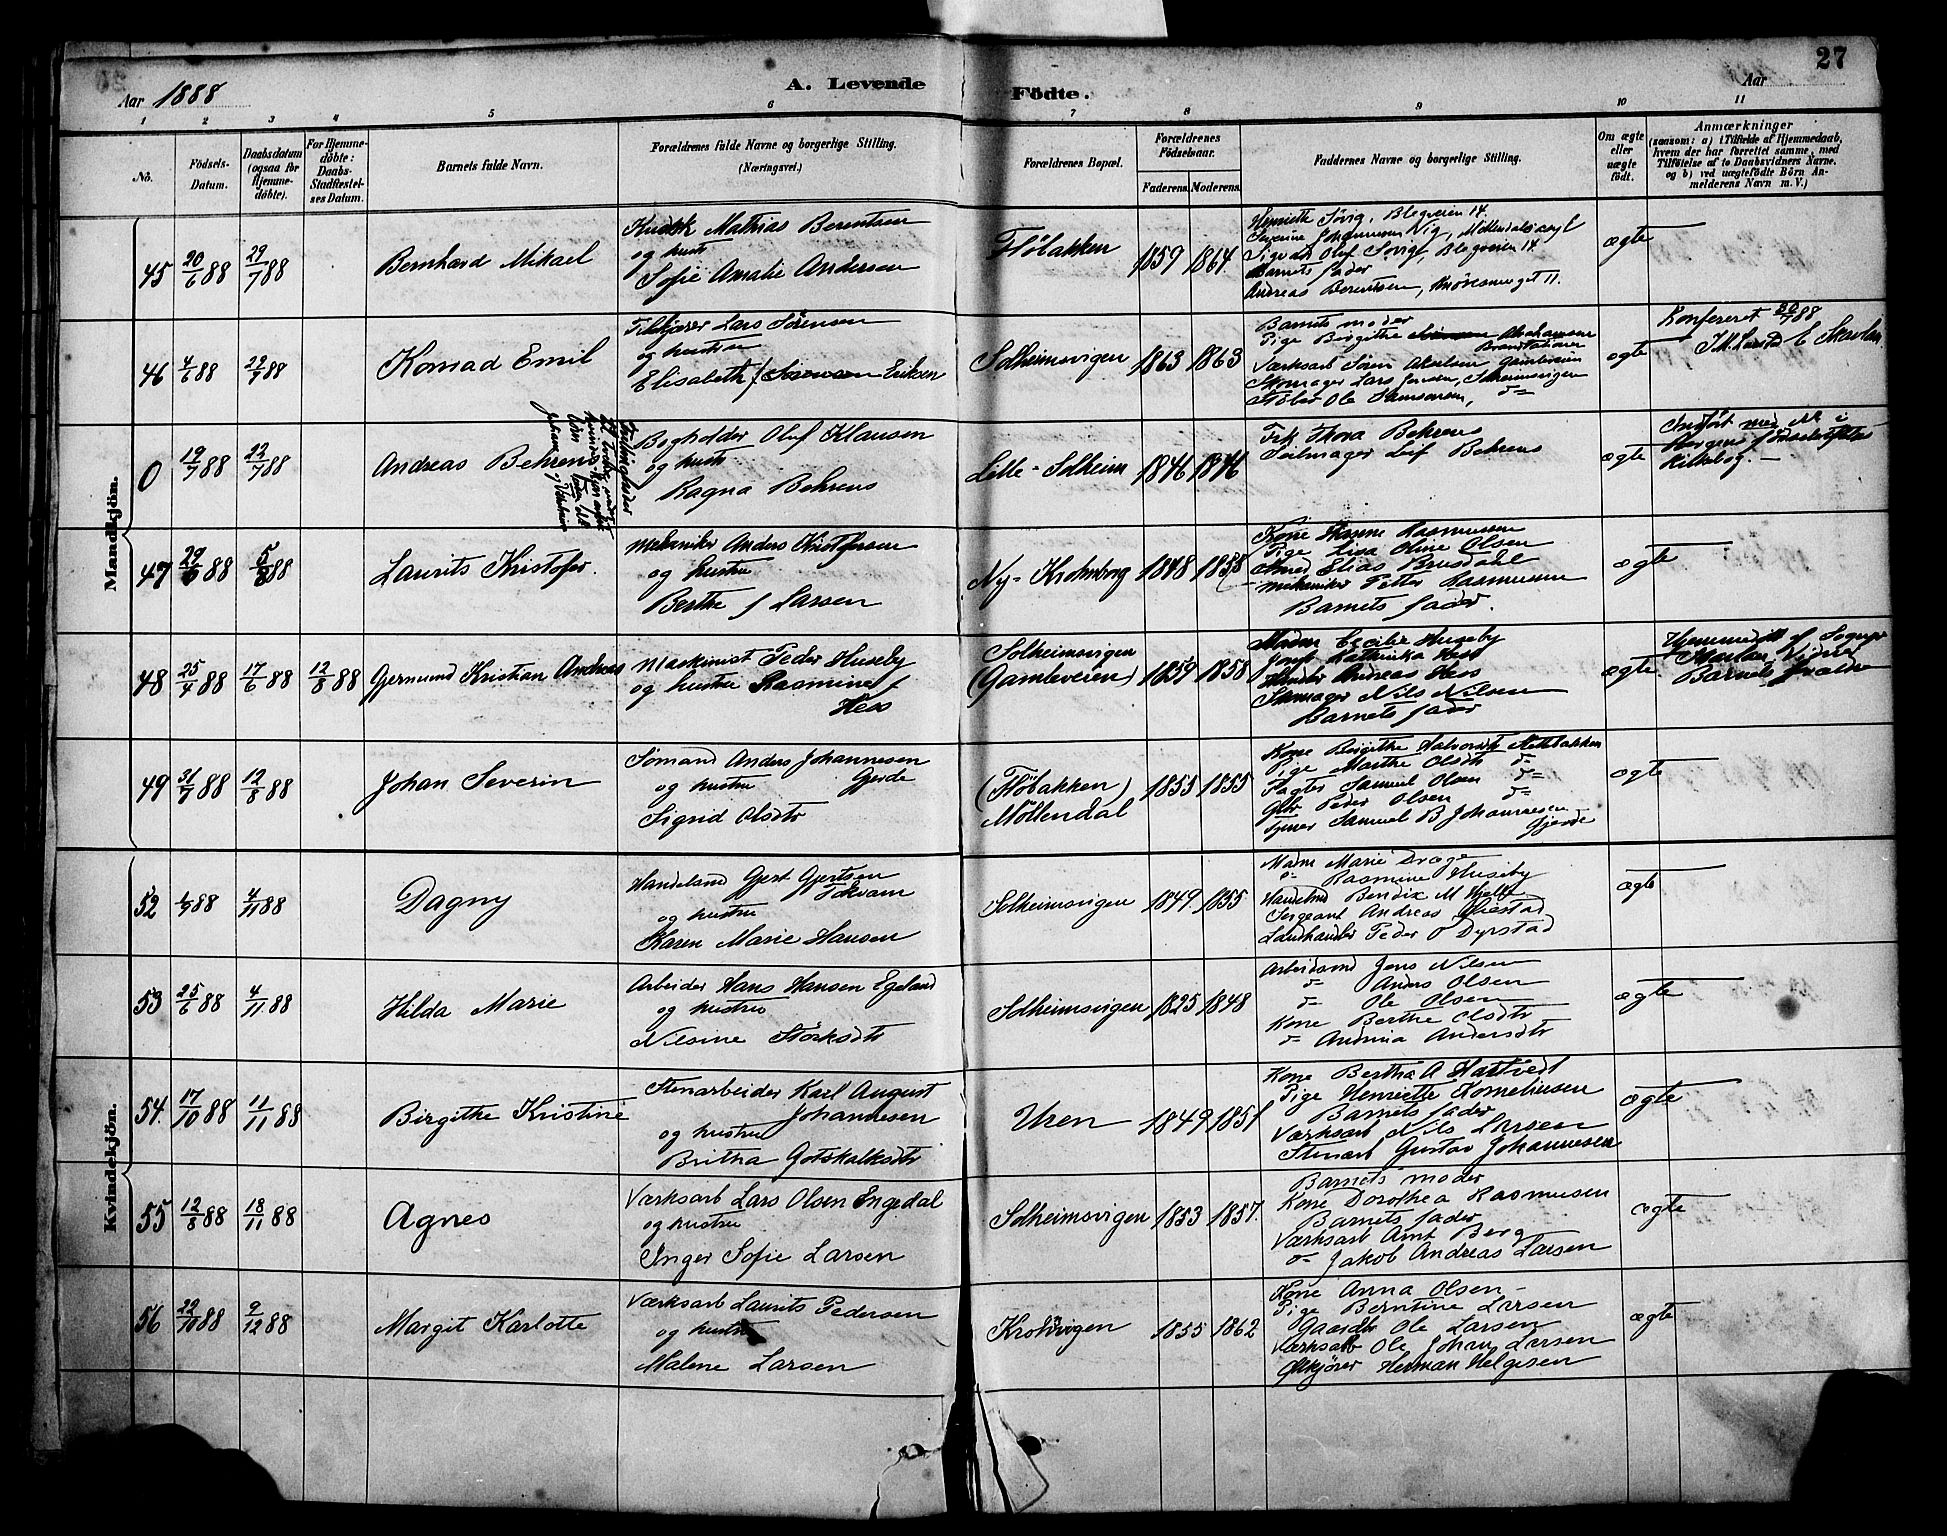 27
Aar 1888
A. Levende
Födte.
Aar
1 2 3 4 5 6 7 8 9 10 11
No.
Födsels-Datum.
Daabsdatum (ogsaa for Hjemme-döbte).
For Hjemme-döbte: Daabs-Stadfæstel-ses Datum.
Barnets fulde Navn.
Forældrenes fulde Navne og borgerlige Stilling.
(Næringsvei.)
Forældrenes Bopæl.
Forældrenes Födselsaar.
Faderens. Moderens.
Faddernes Navne og borgerlige Stilling.
Om ægte eller uægte födt.
Anmærkninger
(saasom: a) i Tilfælde af Hjemmedaab,
hvem der har forrettet samme, med
Tilföielse af to Daabsvidners Navne.
og b) ved uægtefödte Börn An-
melderens Navn m. V.)
Mandkjön.
45 20/6 88 29/7 88 Bernhard Mikael
Mathias Berentsen
og hustr
Sofie Amalie Andersen
Flöbakken 1859 1864
Henriette Blegveien 14
Olaf Blegveien 14
Barnets fader
Andreas Berentsen,
ægte
46 4/6 88 29/7 88 Konrad Emil
Lars Sörensen
og hustru
Elisabeth f Eriksen
Solheimsvigen 1863 1863
Barnets moder
Pige Birgithe Abrahamsen
Værksarb Sören Gamleveien
Skomager Lars Jensen, Solheimsvigen
Ole
ægte
Konfereret 88
0 19/7 88 22/7 88 Andreas Behrens
Bogholder Oluf Klausen
og hustr
Ragna Behrens
Lille-Solheim 1846 1846
Frk Thora Behrens
Seilmager Leif Behrens
ægte
Indfört
Kirkebog.
47 29/6 88 5/8 88 Laurits Kristofer.
Mekaniker Anders Kristofersen
og hustru
Berthe f Larsen
Ny-Krohnborg 1848 1858
Kone Rasmussen
Pige Lisa Oline Olsen
Elias Brusdahl
Mekaniker Petter Rasmussen
Barnets fader.
ægte
48 25/4 88 17/6 88 12/8 88 Gjermund Kristian Andreas
Maskinist Peder Huseby
og hustru Rasmine f
Hess
Solheimsvigen
(Gamleveien) 1859 1858
Madm Cecilie Huseby
Jomf Kathinka Hess
Andreas Hess
Nils Nilsen
Barnets fader
ægte.
Hjemmedöbt af
Barnets
49 31/7 88 12/8 88 Johan Severin
Sömand Anders Johannesen
og hustru Gjerde
Sigrid Olsdtr
(Flöbakken)
Möllendal 1855 1855
Kone Birgithe Halvorsdtr
Pige Marthe Olsdtr do
Samuel Olsen do
Peder Olsen do
Samuel B Johannesen
Gjerde
ægte
Kvindekjön.
52 /9 88 4/11 88 Dagny
Handelsmd Gjert Gjertsen
Tokvam
og hustru
Karen Marie Hansen
Solheimsvigen 1849. 1855
Madm Marie Dræge
do Rasmine Huseby
Handelsmd Bendix M Hjelle
Sergeant Andreas
Landhandler Peder O Dyrstad
ægte
53 25/6 88 4/11 88 Hilda Marie
Arbeider Hans Hansen Egeland
og hustru
Nilsine Störksdtr
Solheimsvigen 1825 1848
Arbeidsmd Jens Nilsen
do Anders Olsen
do Ole Olsen
Kone Berthe Olsdtr
do Andrina Andersdtr
ægte
54. 17/10 88 11/11 88 Birgithe Kristine
Stenarbeider Karl August
Johannesen
og hustru
Britha Gotskalksdtr
Uren 1849 1851
Kone Bertha A Hartvedt
Pige Henriette Korneliusen
Barnets fader
Værksarb Nils Larsen
Stenarb Gustav Johannesen
ægte
55 12/8 88 18/11 88 Agnes
Værksarb Lars Olsen Engedal
og hustru
Inger Sofie Larsen
Solheimsvigen 1853 1857.
Barnets moder
Kone Dorothea Rasmusen
Barnets fader
Værksarb Arnt Berg
do Jakob Andreas Larsen
ægte
56 22/10 88 9/12 88 Margit Karlotte
Værksarb Laurits Pedersen
og hustru
Malene Larsen
Krohnvigen 1855 1862
Kone Anna Olsen
Pige Berntine Larsen
Gaardbr Ole Larsen
Værksarb Ole Johan Larsen
Ölkjörer Herman Helgesen
ægte